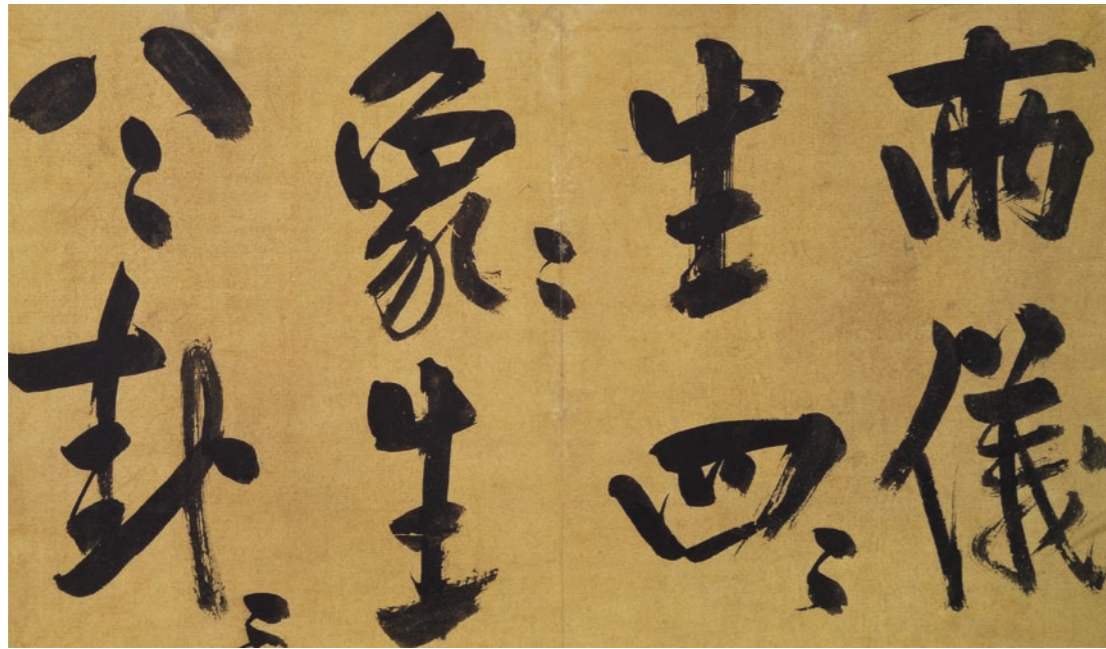 兩儀
生四〻
象〻生
八〻卦〻